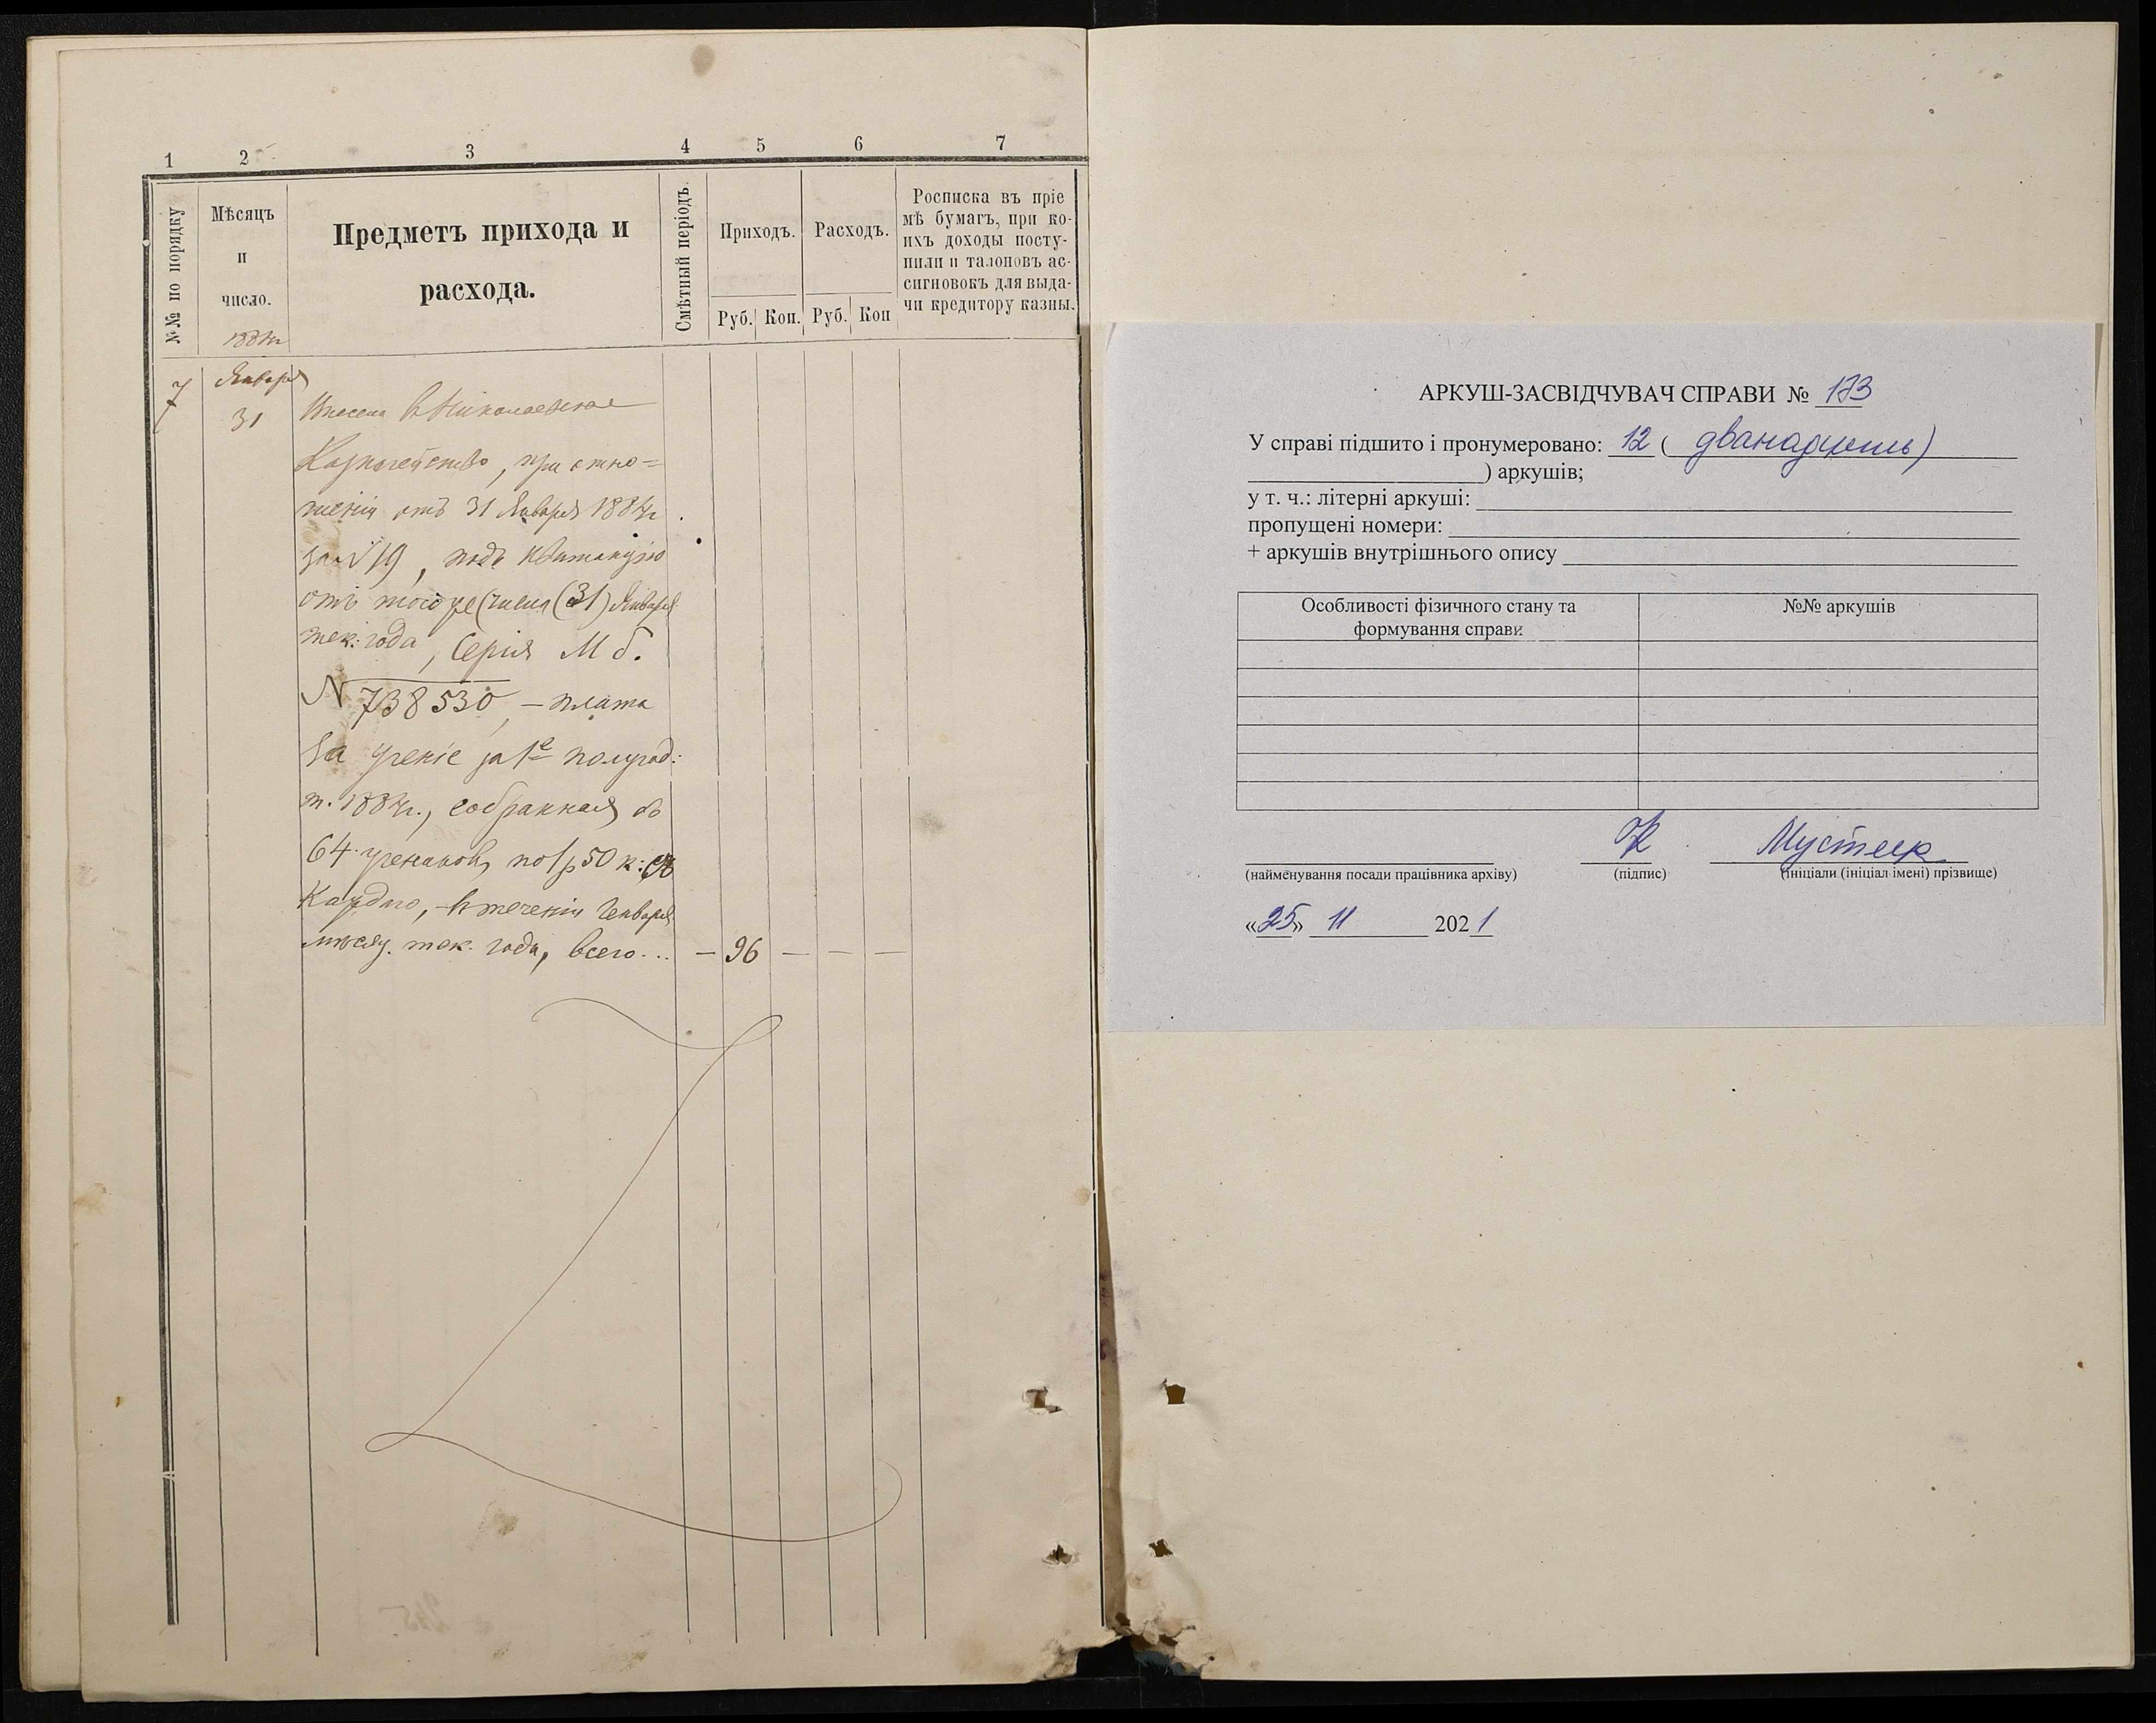 1 2 3 4 5 6 7
№№ по порядку
Мѣсяцъ
и
число.
1884 г
Предметъ прихода и
расхода.
Смѣтный періодъ.
Приходъ.
Руб. Коп.
Расходъ.
Руб. Коп
Росписка въ пріе
мѣ бумагъ, при ко-
ихъ доходы посту-
пили и талоновъ ас-
сигновокъ для выда-
чи кредитору казны.
7
Января
31
Внесена в Николаевское
Казначейство, при отно=
шеніи отъ 31 Января 1884 г
за N 19, подъ квитанцію
отъ того же числа (31) Января
тек: года, Серія М б.
N 738530, – плата
за ученіе за 1е полугод:
т. 1884 г., собранная съ
64 учениковъ, по 1 р 50 к: съ
каждаго, – в теченіи Января
мѣсяц. тек. года, всего... – 96 – – –
АРКУШ-ЗАСВІДЧУВАЧ СПРАВИ № 173
У справі підшито і пронумеровано: 12 ( дванадцять)
) аркушів;
у т. ч.: літерні аркуші:
пропущені номери:
+ аркушів внутрішнього опису
Особливості фізичного стану та
формування справи
№№ аркушів
Мустецк
(найменування посади працівника архіву) (підпис) (ініціали (ініціал імені) прізвище)
«25» 11 2021